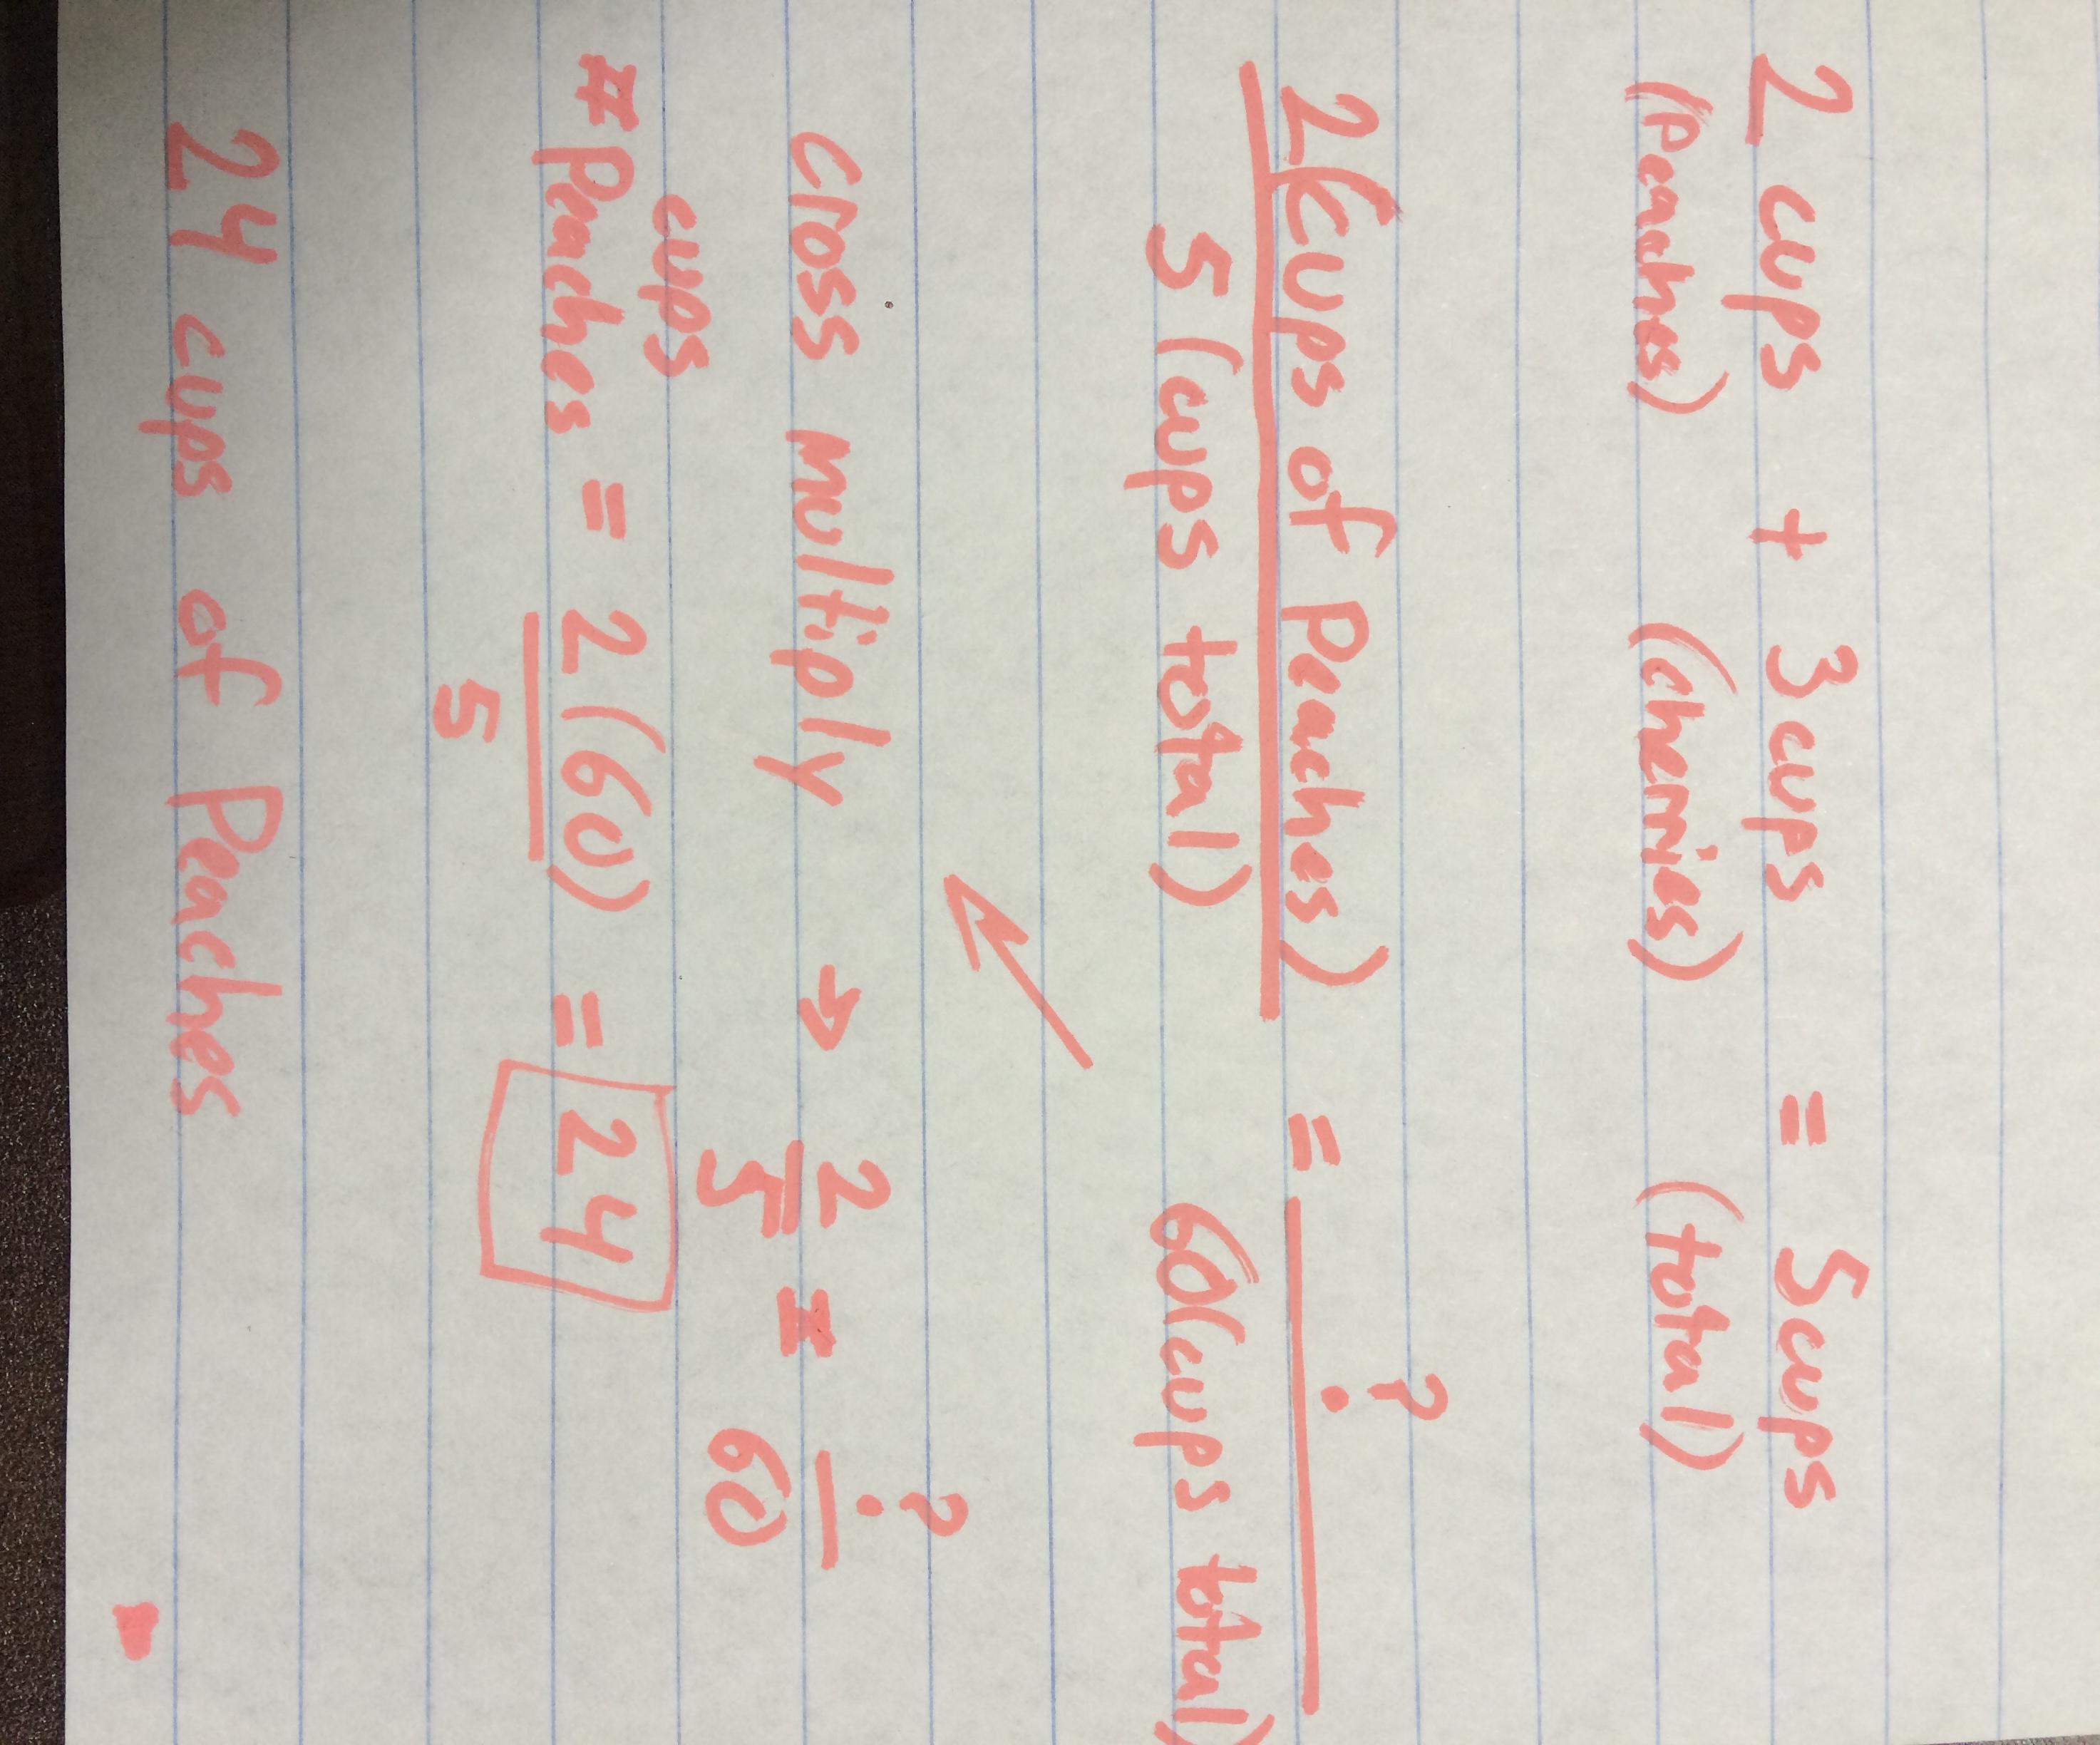 2 cups + 3 cups = 5 cups
(Peaches) (cherries) (total)
2(cups of Peaches) = ?
5 (cups total) 60(cups total)
cross multiply → 2 = ?
5 60
cups
# Peaches = 2(60) = 24
5
24 cups of Peaches